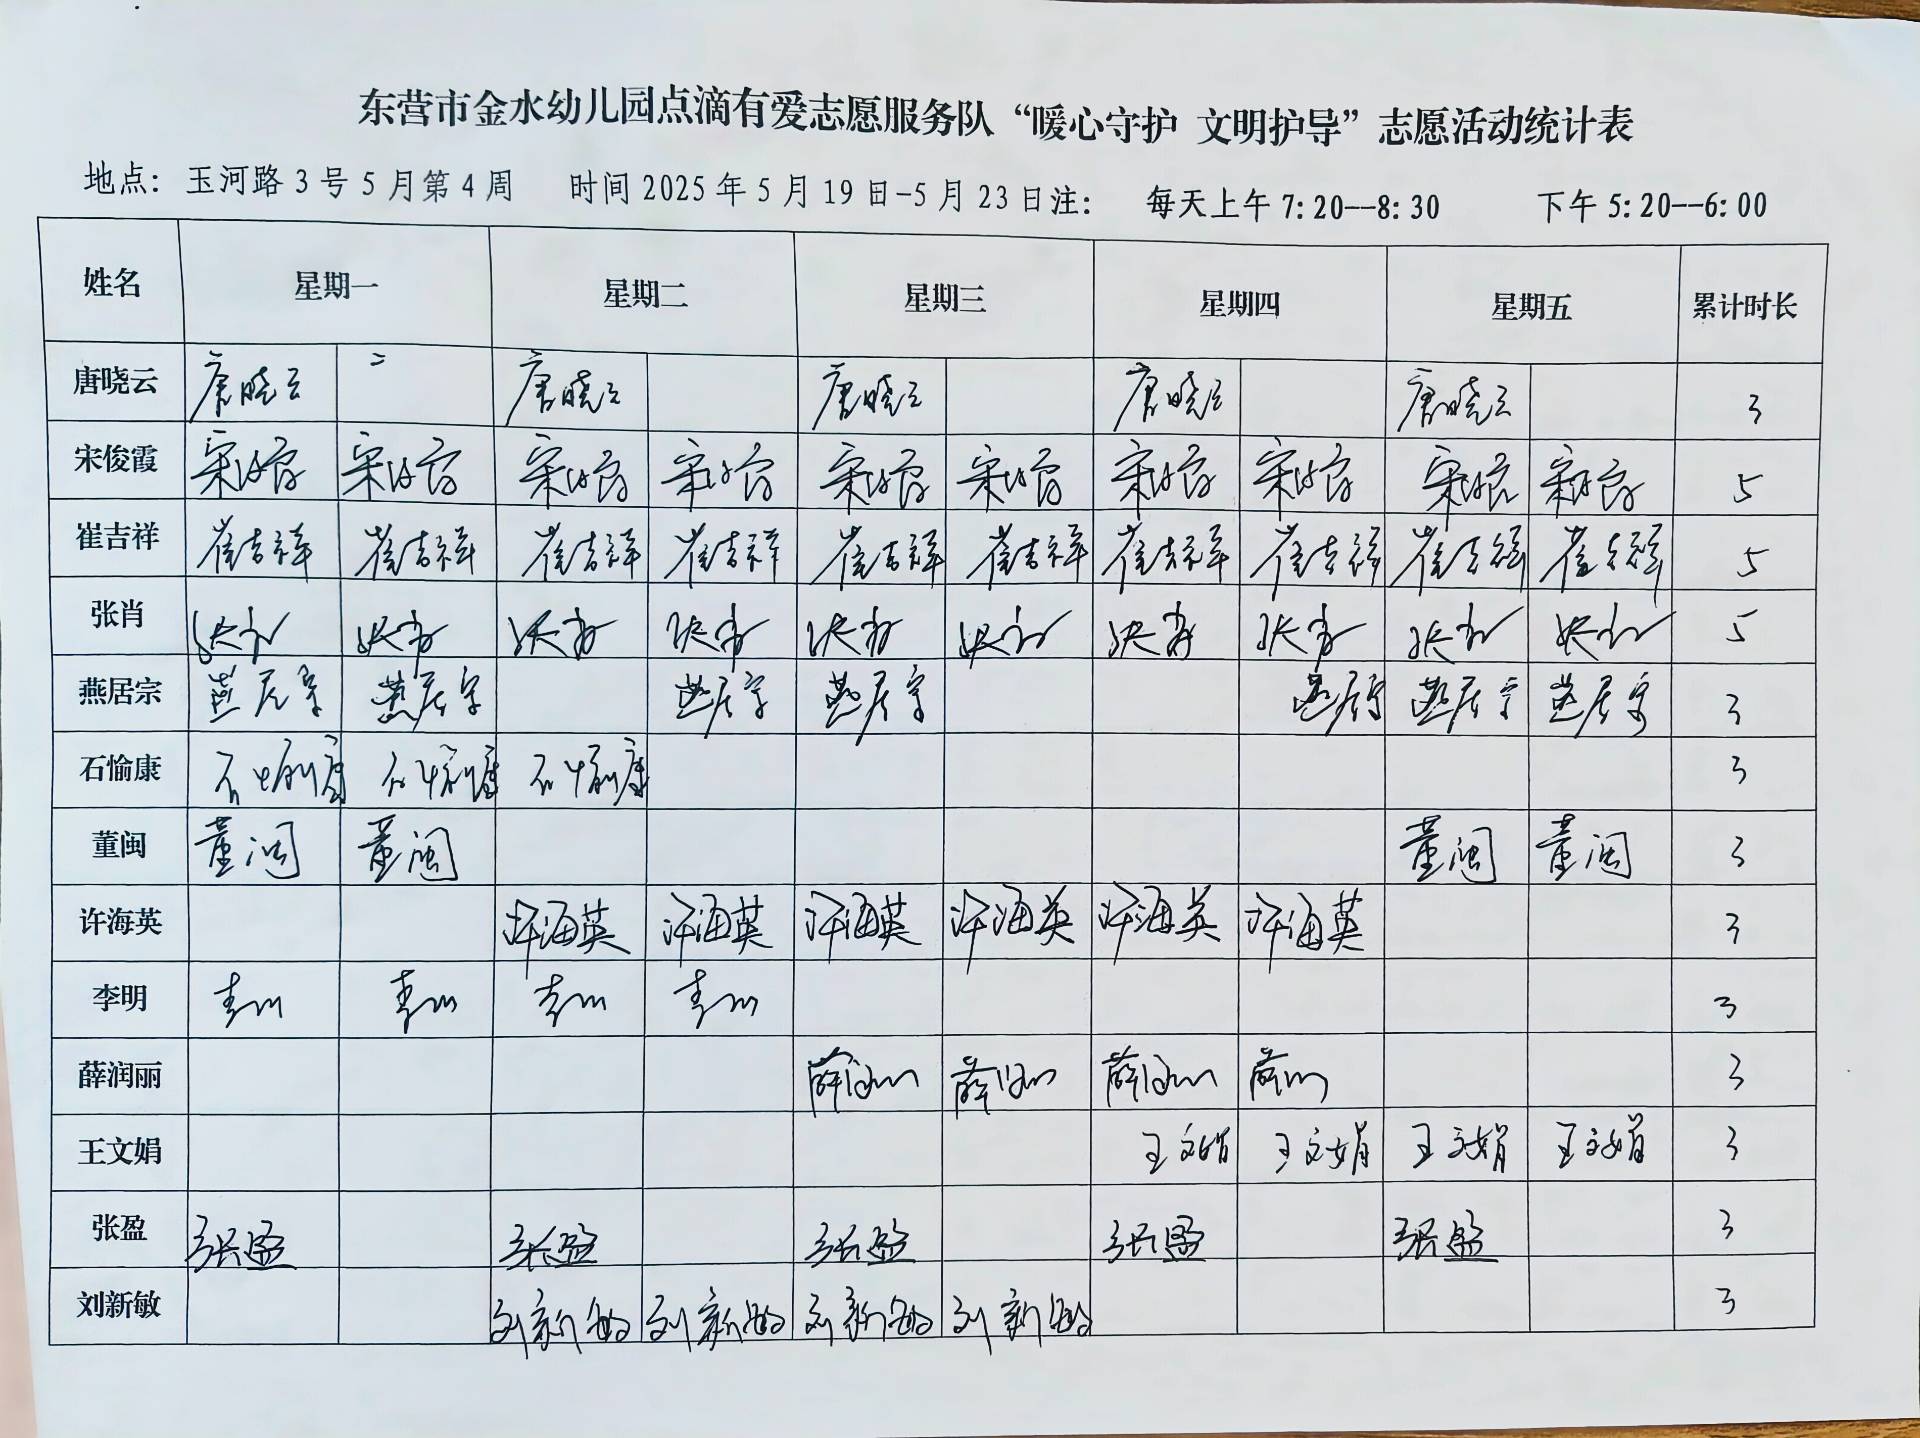 东营市金水幼儿园点滴有爱志愿服务队“暖心守护 文明护导”志愿活动统计表
地点：玉河路3号5月第4周 时间2025年5月19日-5月23日注： 每天上午7:20--8:30 下午5:20--6:00
姓名 星期一 星期二 星期三 星期四 星期五 累计时长
唐晓云 唐晓云 二 唐晓云 唐晓云 唐晓云 唐晓云 3
宋俊霞 宋俊霞 宋俊霞 宋俊霞 宋俊霞 宋俊霞 宋俊霞 宋俊霞 宋俊霞 宋俊霞 宋俊霞 5
崔吉祥 崔吉祥 崔吉祥 崔吉祥 崔吉祥 崔吉祥 崔吉祥 崔吉祥 崔吉祥 崔吉祥 崔吉祥 5
张肖 张肖 张肖 张肖 张肖 张肖 张肖 张肖 张肖 张肖 张肖 5
燕居宗 燕居宗 燕居宗 燕居宗 燕居宗 燕居宗 燕居宗 燕居宗 3
石愉康 石愉康 石愉康 石愉康 3
董闽 董闽 董闽 董闽 董闽 3
许海英 许海英 许海英 许海英 许海英 许海英 许海英 3
李明 李明 李明 李明 李明 3
薛润丽 薛润丽 薛润丽 薛润丽 薛润丽 3
王文娟 王文娟 王文娟 王文娟 王文娟 3
张盈 张盈 张盈 张盈 张盈 张盈 3
刘新敏 刘新敏 刘新敏 刘新敏 刘新敏 3